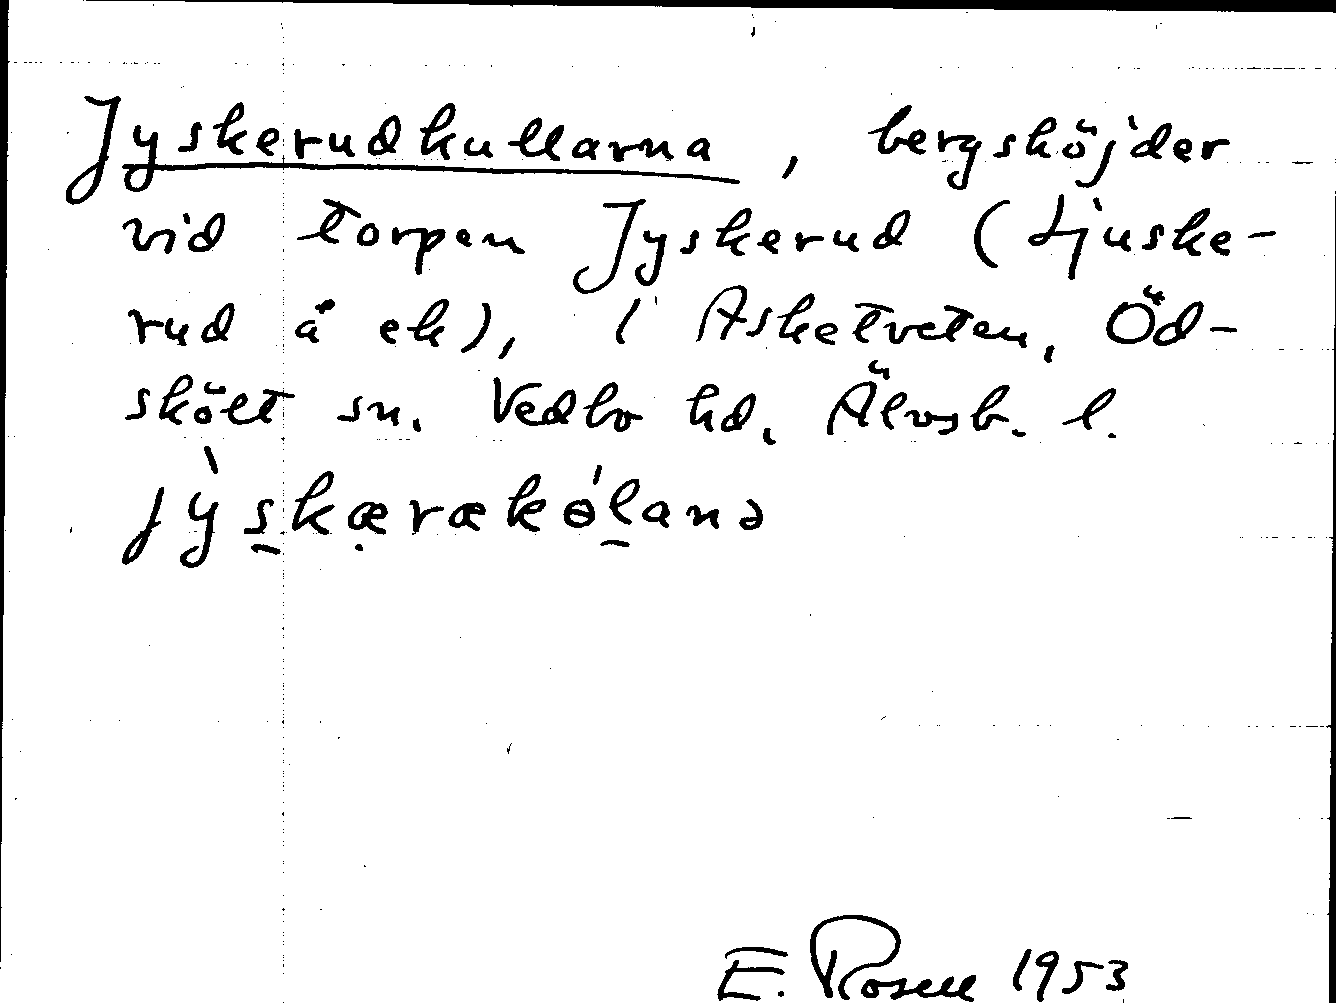 Jyskerudkullarna, bergshöjder
vid torpen Jyskerud (Ljuske-
rud å ek), i Asketveten, Öd-
skölt sn. Vedbo hd. Älvsb. l.
jy̆̀skærækɵ́lanə
E. Rosell 1953